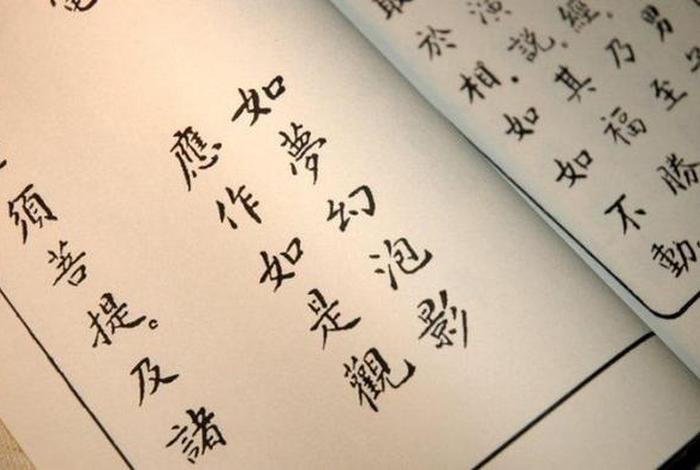 男
經，乃至
演說，其福勝
取於相。如如不動
如夢幻泡影
電 應作如是觀
須菩提。及諸